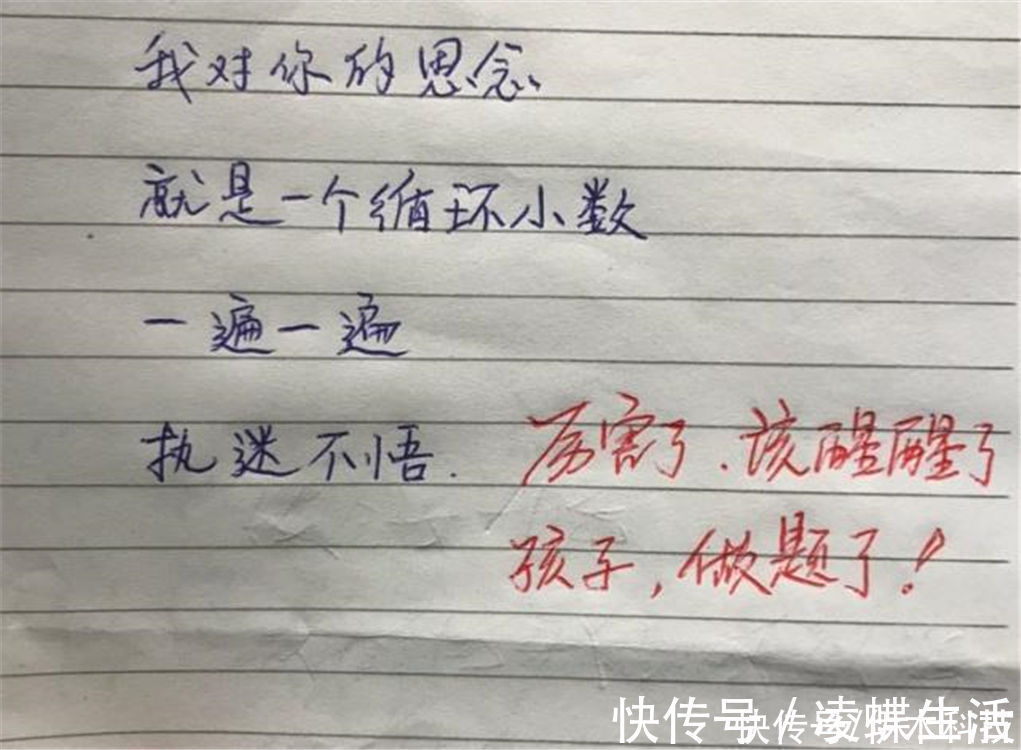 我对你的思念
就是一个循环小数
一遍一遍
执迷不悟.
厉害了.该醒醒了
孩子,做题了!
快传号/凌蝶生活
快传号/
科技